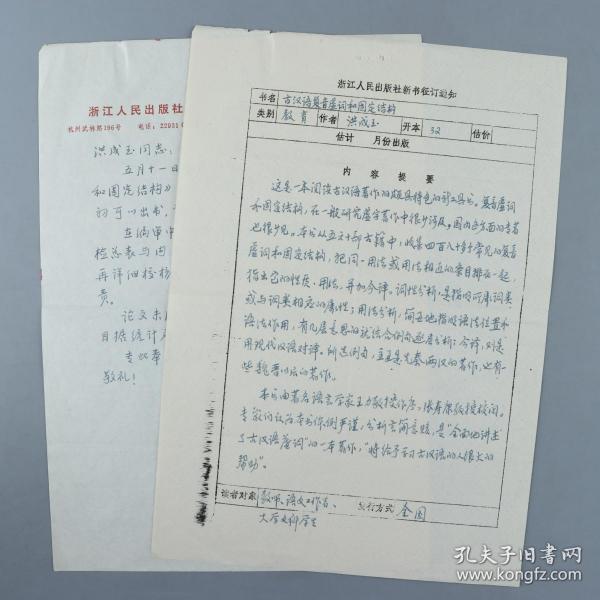 浙江人民出版社
杭州武林路196号 电话：22931
洪成玉同志：
五月十一日
和固定结构》
的可以出书，
在编审中
检总表与内
再详细检核
责。
论文未
目据统计
专此奉
敬礼！
浙江人民出版社新书征订通知
书名 古汉语复音虚词和固定结构
类别 教育 作者 洪成玉 开本 32 估价
估计 月份出版
内容提要
这是一本阅读古汉语著作的颇具特色的新工具书。复音虚词
和固定结构，在一般研究虚字著作中很少涉及。国内这方面的专著
也很少见。本书从五六十部古籍中，收集四百八十多个常见的复音
虚词和固定结构，把同一用法或用法相近的条目排在一起，
指出它的性质、用法，并加今译。词性分析，是指明所属词类
或与词类相应的属性；用法分析，简要地指明语法位置和
语法作用，有几层意思的就结合例句逐层分析；今译，则是
用现代汉语对译。所选例句，主要是先秦两汉的著作，也有一
些魏晋以后的著作。
本书由著名语言学家王力教授作序，张寿康教授校阅。
专家们认为本书体例严谨，分析言简意赅，是“全面地讲述
了古汉语虚词”的一本著作，“将给予学习古汉语的人很大的
帮助”。
读者对象 教师、语文工作者、 发行方式 全国
大学文科学生
孔夫子旧书网
www.kongfz.com